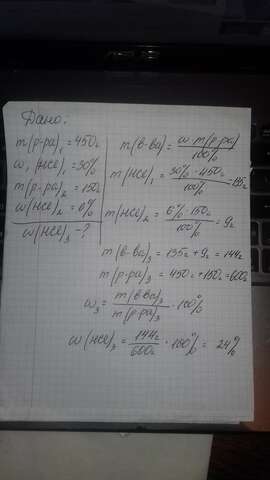 Дано:
m(р-ра)₁ = 450г
w₁(HCl)₁ = 30%
m(р-ра)₂ = 150г
w(HCl)₂ = 6%
w(HCl)₃ - ?
m(в-ва) = w · m(р-ра) / 100%
m(HCl)₁ = 30% · 450г / 100% = 135г
m(HCl)₂ = 6% · 150г / 100% = 9г
m(в-ва)₃ = 135г + 9г = 144г
m(р-ра)₃ = 450г + 150г = 600г
w₃ = m(в-ва)₃ / m(р-ра)₃ · 100%
w(HCl)₃ = 144г / 600г · 100% = 24%